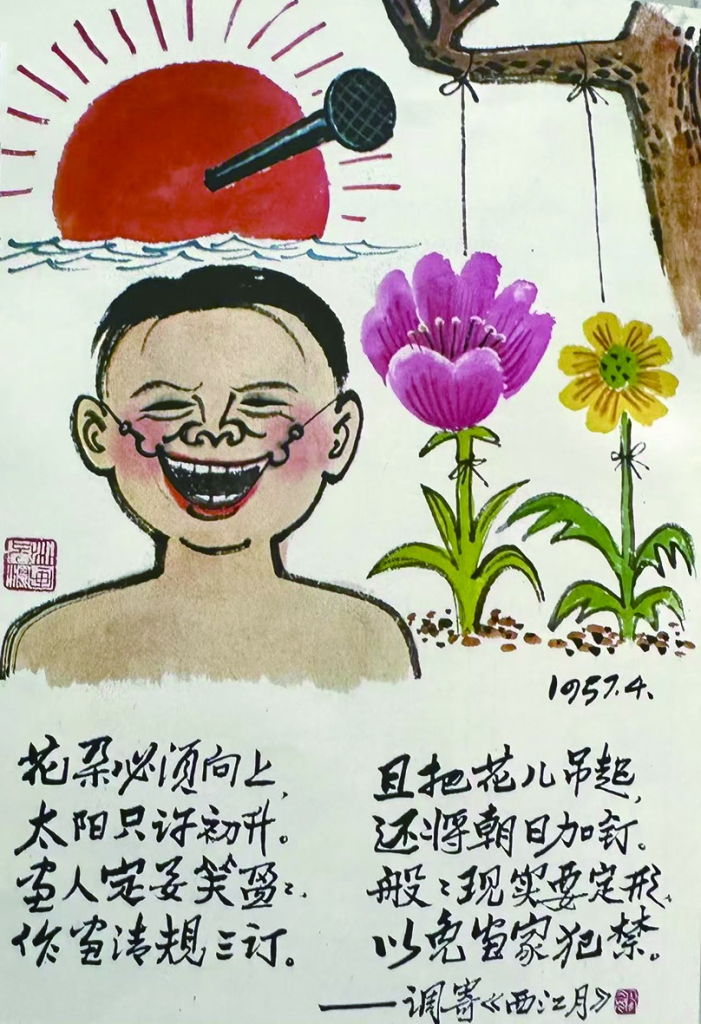 1957.4.
花朵必须向上,
太阳只许初升。
画人定要笑盈〻.
作画清规三订。
且把花儿吊起,
还将朝日加钉。
般〻现实要定形,
以免画家犯禁。
——调寄《西江月》